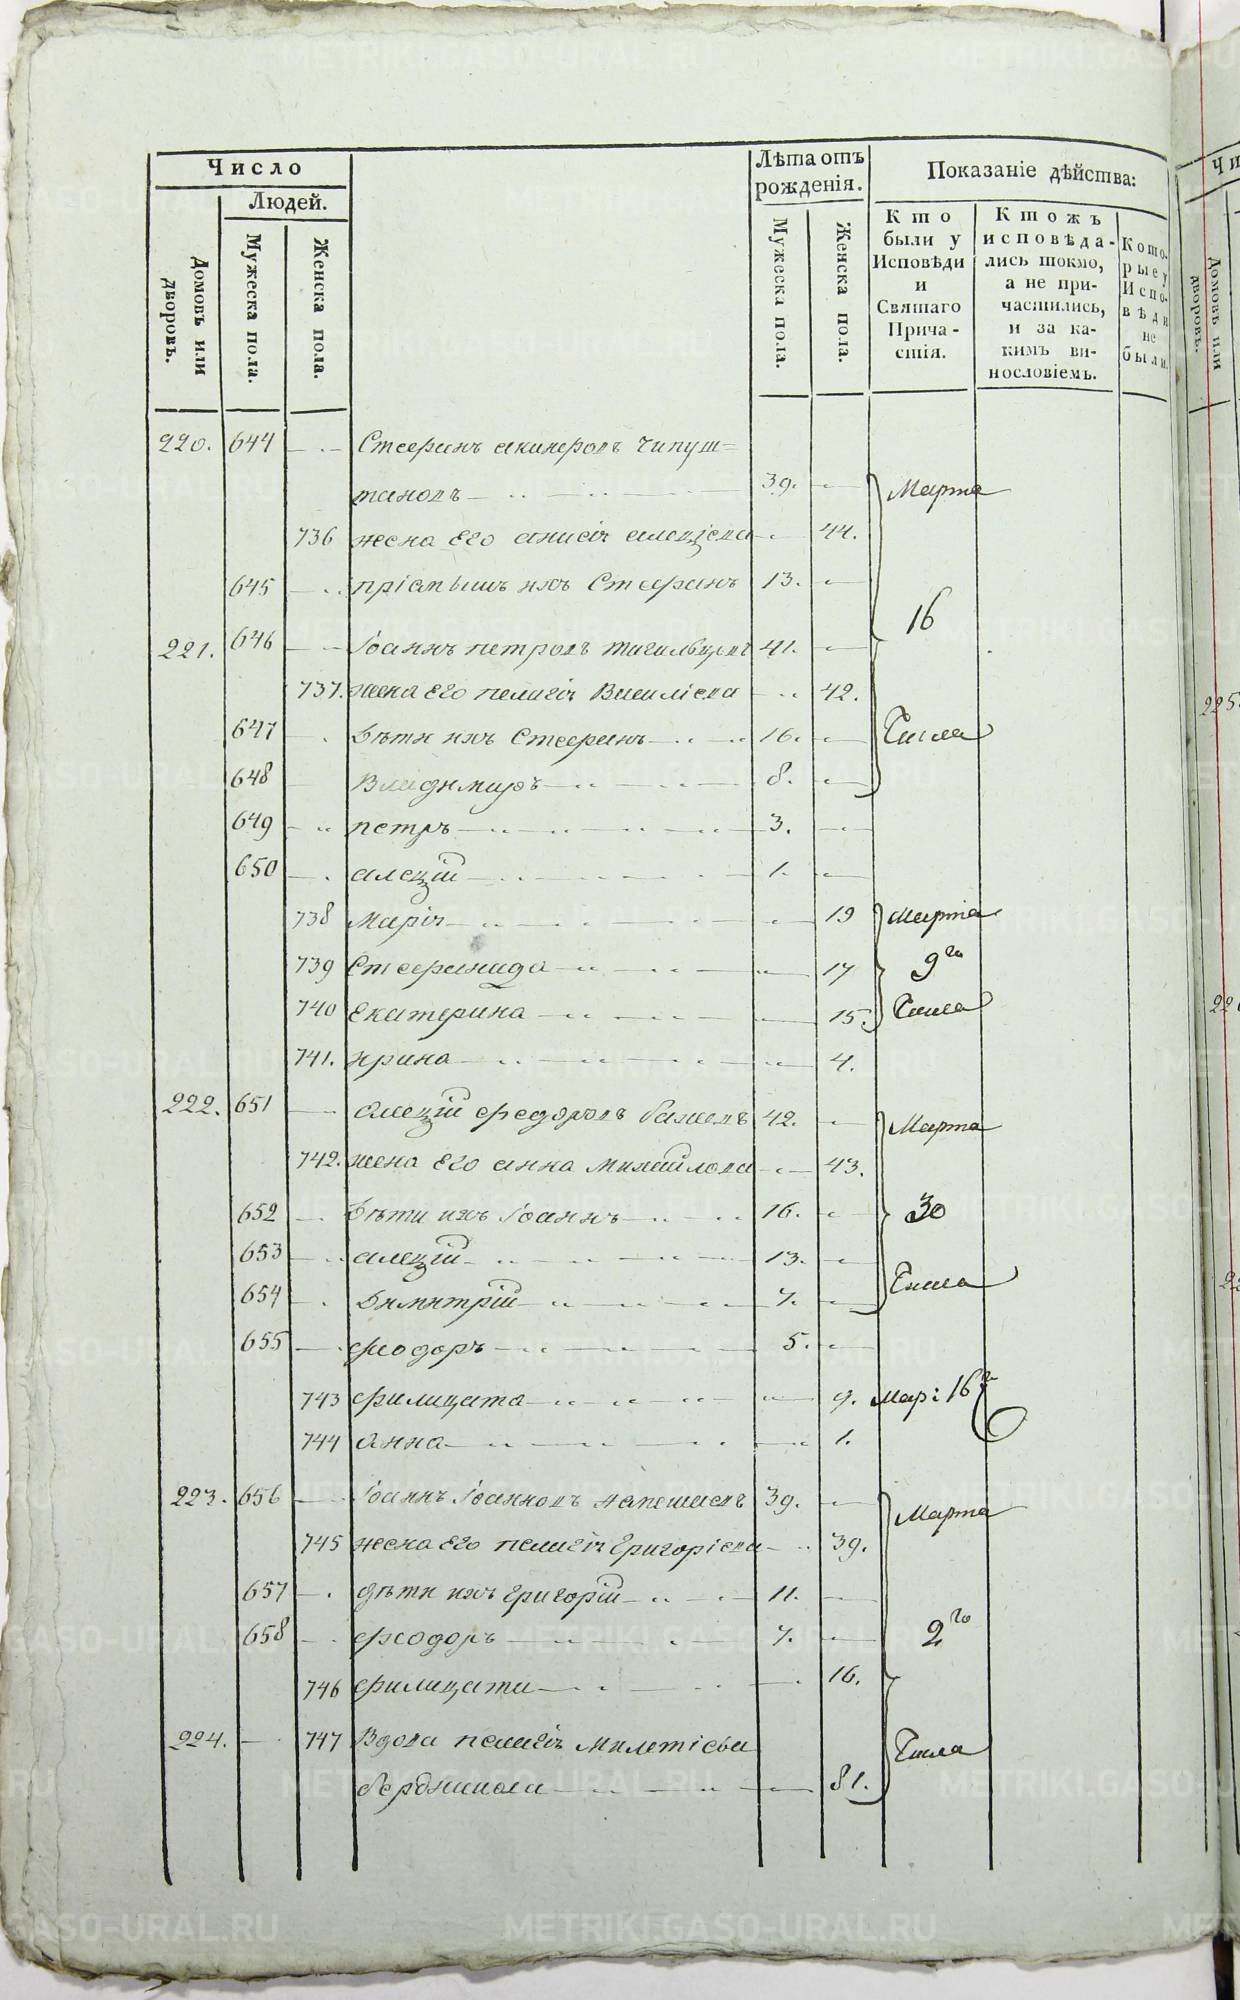 Число
Людей.
Домовъ или дворовъ.
Мужеска пола.
Женска пола.
Лѣта отъ рожденія.
Мужеска пола.
Женска пола.
Показаніе дѣйства:
Кто были у Исповѣди и Святаго Причастія.
Ктожъ исповѣдались токмо, а не причастились, и за какимъ винословіемъ.
Которые у Исповѣди не были.
220. 644 Стефанъ
39. Марта
736 жена Его анисія алеѯіева 44.
645 пріемышъ ихъ Стефанъ 13.
16
221. 646 Іоаннъ петровъ 41.
737. жена Его пелагія Василіева 42.
647 Дѣти ихъ Стефанъ 16. Числа
648 Владимиръ 8.
649 петръ 3.
650 алеѯій 1.
738 Марія 19 Марта
739 Стефанида 17 9го
740 Екатерина 15. Числа
741. ирина 4.
222. 651 алеѯій федоровъ бажевъ 42. Марта
742. жена Его анна михайлова 43.
652 Дѣти ихъ Іоаннъ 16. 30
653 алеѯій 13.
654 Димитрій 7. Числа
655 феодоръ 5.
743 филицата 9. Мар: 16г
744 анна 1.
223. 656 Іоаннъ Іоанновъ 39. Марта
745 жена Его пелагія Григоріева 39.
657 дѣти ихъ Григорій 11.
658 феодоръ 7. 2го
746 филицата 16.
224. 747 Вдова пелагія Милетіева Числа
81.
METRIKI.GASO-URAL.RU